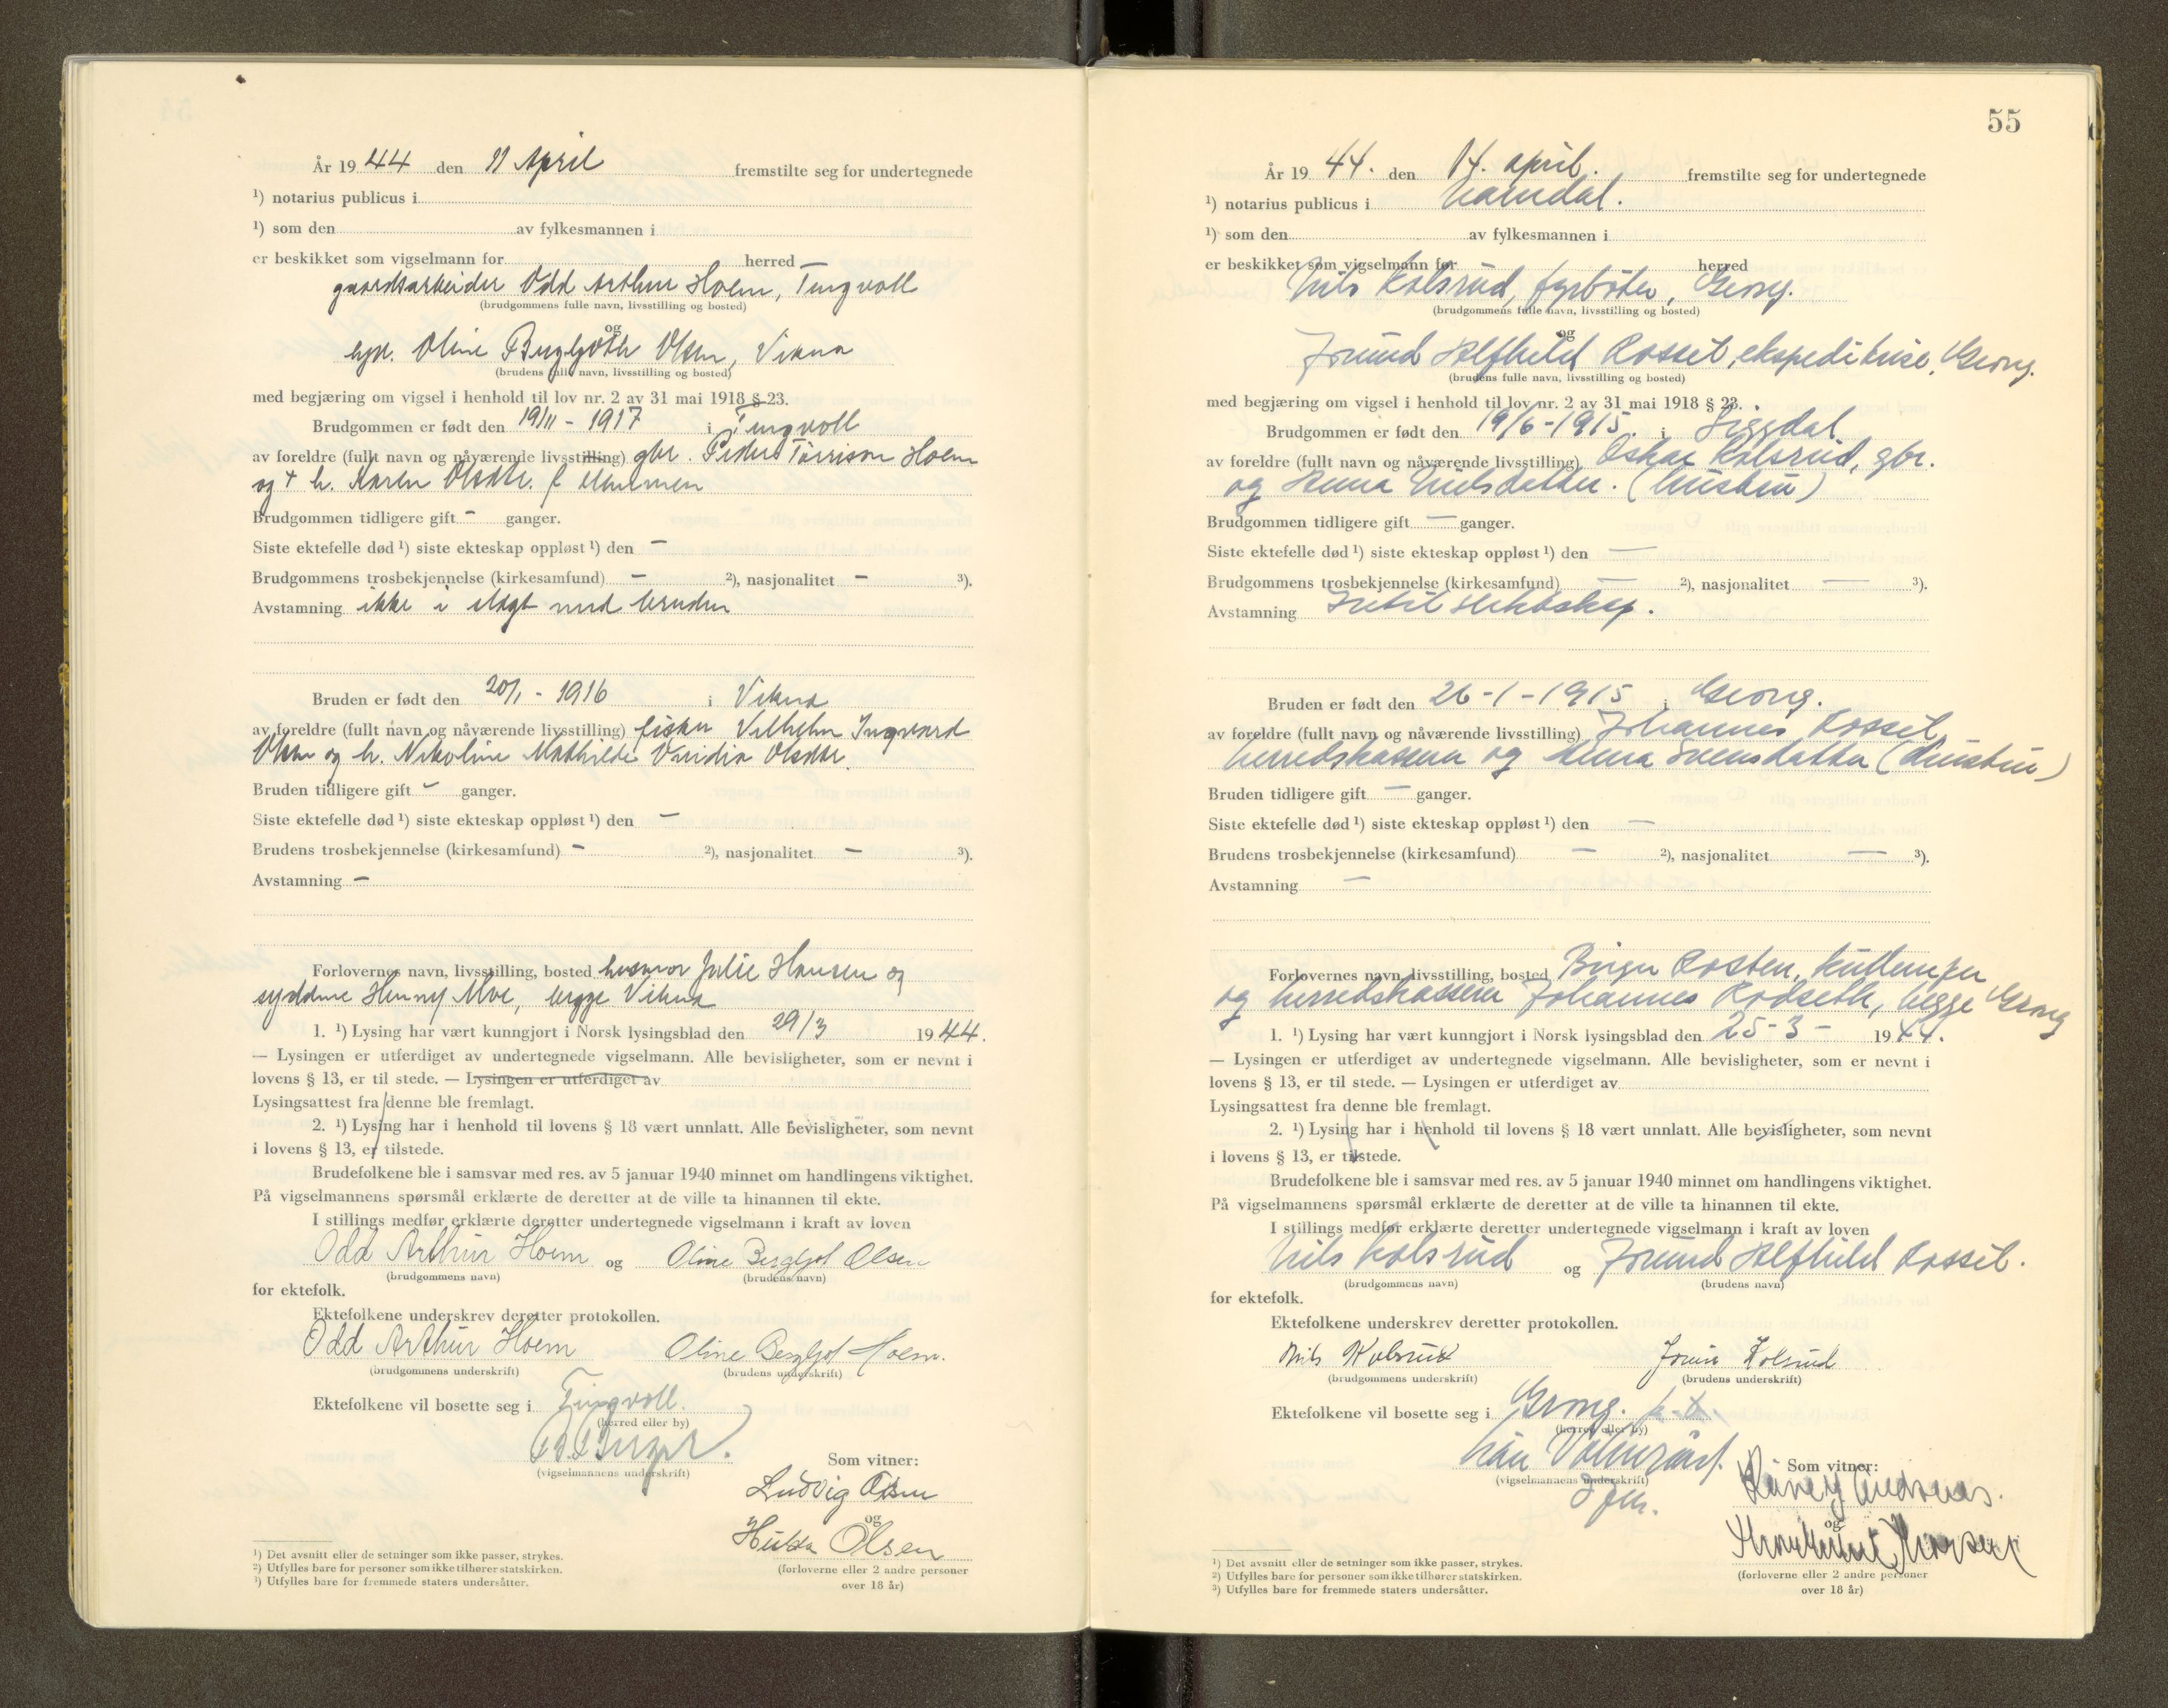 År 19 44 den 11 April fremstilte seg for undertegnede
¹) notarius publicus i
¹) som den av fylkesmannen i
er beskikket som vigselmann for herred —
gaardsarbeider Odd Arthur Hoem, Tingvoll
(brudgommens fulle navn, livsstilling og bosted)
og
Oline Bergljoth Olsen, Vikna
(brudens fulle navn, livsstilling og bosted)
med begjæring om vigsel i henhold til lov nr. 2 av 31 mai 1918 § 23.
Brudgommen er født den 19/11 - 1917 i Tingvoll
av foreldre (fullt navn og nåværende livsstilling) gbr. Peder Tørrisen Hoem
og + h. Karen Olsdtr. f.
Brudgommen tidligere gift - ganger.
Siste ektefelle død ¹) siste ekteskap oppløst ¹) den —
Brudgommens trosbekjennelse (kirkesamfund) — ²), nasjonalitet — ³).
Avstamning ikke i slegt med bruden
Bruden er født den 20/1 - 1916 i Vikna
av foreldre (fullt navn og nåværende livsstilling) fisker Vilhelm Ingvard
Olsen og h. Nikoline Mathilde Olsdtr.
Bruden tidligere gift - ganger.
Siste ektefelle død ¹) siste ekteskap oppløst ¹) den —
Brudens trosbekjennelse (kirkesamfund) — ²), nasjonalitet — ³).
Avstamning —
Forlovernes navn, livsstilling, bosted husmor Julie Hansen og
sydame Henny Moe, begge Vikna
1. ¹) Lysing har vært kunngjort i Norsk lysingsblad den 29/3 1944.
— Lysingen er utferdiget av undertegnede vigselmann. Alle bevisligheter, som er nevnt i
lovens § 13, er til stede. — Lysingen er utferdiget av
Lysingsattest fra denne ble fremlagt.
2. ¹) Lysing har i henhold til lovens § 18 vært unnlatt. Alle bevisligheter, som nevnt
i lovens § 13, er tilstede.
Brudefolkene ble i samsvar med res. av 5 januar 1940 minnet om handlingens viktighet.
På vigselmannens spørsmål erklærte de deretter at de ville ta hinannen til ekte.
I stillings medfør erklærte deretter undertegnede vigselmann i kraft av loven
Odd Arthur Hoem og Oline Bergljot Olsen
(brudgommens navn) (brudens navn)
for ektefolk.
Ektefolkene underskrev deretter protokollen.
Odd Arthur Hoem Oline Bergljot Hoem.
(brudgommens underskrift) (brudens underskrift)
Ektefolkene vil bosette seg i Tingvoll.
(herred eller by)
(vigselmannens underskrift)
Som vitner:
Ludvig Olsen
og
Hulda Olsen
(forloverne eller 2 andre personer
over 18 år)
¹) Det avsnitt eller de setninger som ikke passer, strykes.
²) Utfylles bare for personer som ikke tilhører statskirken.
³) Utfylles bare for fremmede staters undersåtter.
55
År 19 44. den 14. april. fremstilte seg for undertegnede
¹) notarius publicus i Namdal.
¹) som den av fylkesmannen i
er beskikket som vigselmann for herred
Nils Kolsrud, fyrbøter, Grong.
(brudgommens fulle navn, livsstilling og bosted)
og
Jorund Alfhild Rosset, ekspeditrise, Grong.
(brudens fulle navn, livsstilling og bosted)
med begjæring om vigsel i henhold til lov nr. 2 av 31 mai 1918 § 23.
Brudgommen er født den 19/6-1915. i Siggdal
av foreldre (fullt navn og nåværende livsstilling) Oskar Kolsrud, gbr.
og Anna Nilsdatter. (hustru)
Brudgommen tidligere gift — ganger.
Siste ektefelle død ¹) siste ekteskap oppløst ¹) den —
Brudgommens trosbekjennelse (kirkesamfund) — ²), nasjonalitet — ³).
Avstamning Intet slektskap.
Bruden er født den 26-1-1915 i Grong.
av foreldre (fullt navn og nåværende livsstilling) Johannes Rosset,
herredskasserer og Anna Svensdatter (hustru)
Bruden tidligere gift — ganger.
Siste ektefelle død ¹) siste ekteskap oppløst ¹) den —
Brudens trosbekjennelse (kirkesamfund) — ²), nasjonalitet — ³).
Avstamning —
Forlovernes navn, livsstilling, bosted Birger Rosten, kullemper
og herredskasserer Johannes Rodseth, begge Grong
1. ¹) Lysing har vært kunngjort i Norsk lysingsblad den 25-3- 1944.
— Lysingen er utferdiget av undertegnede vigselmann. Alle bevisligheter, som er nevnt i
lovens § 13, er til stede. — Lysingen er utferdiget av
Lysingsattest fra denne ble fremlagt.
2. ¹) Lysing har i henhold til lovens § 18 vært unnlatt. Alle bevisligheter, som nevnt
i lovens § 13, er tilstede.
Brudefolkene ble i samsvar med res. av 5 januar 1940 minnet om handlingens viktighet.
På vigselmannens spørsmål erklærte de deretter at de ville ta hinannen til ekte.
I stillings medfør erklærte deretter undertegnede vigselmann i kraft av loven
Nils Kolsrud og Jorund Alfhild Rosset.
(brudgommens navn) (brudens navn)
for ektefolk.
Ektefolkene underskrev deretter protokollen.
Nils Kolsrud Jorun Kolsrud
(brudgommens underskrift) (brudens underskrift)
Ektefolkene vil bosette seg i Grong.
(herred eller by)
(vigselmannens underskrift)
Som vitner:
og
(forloverne eller 2 andre personer
over 18 år)
¹) Det avsnitt eller de setninger som ikke passer, strykes.
²) Utfylles bare for personer som ikke tilhører statskirken.
³) Utfylles bare for fremmede staters undersåtter.